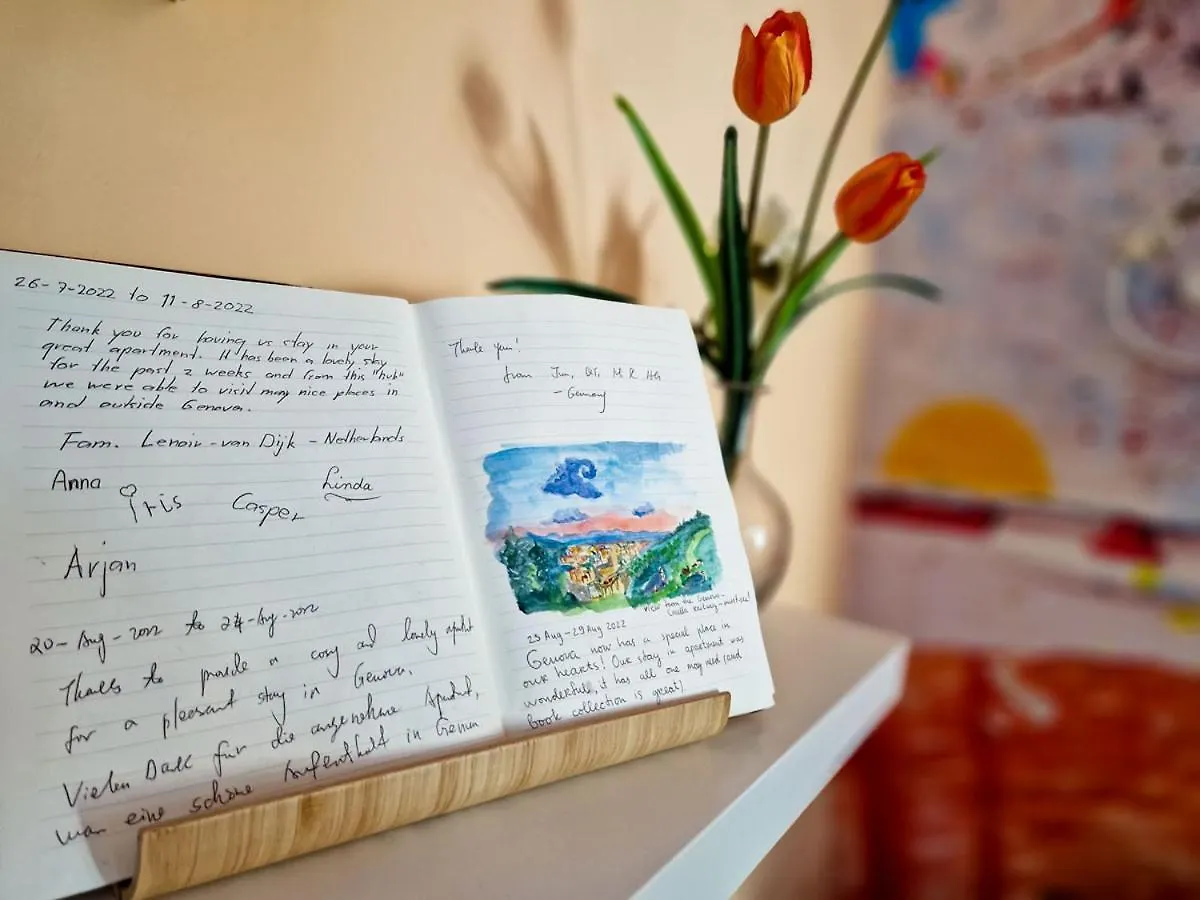 26-7-2022 to 11-8-2022
Thank you for having us stay in your
great apartment. It has been a lovely stay
for the past 2 weeks and from this "hub"
we were able to visit many nice places in
and outside Genova.
Fam. Lenoir-van Dijk - Netherlands
Anna
Iris Casper Linda
Arjan
20-Aug-2022 to 24-Aug-2022
Thanks to provide a cosy and lovely
for a pleasant stay in Genova.
Vielen Dank für die angenehme
war eine schöne Aufenthalt in Genua
Thank you!
from Jun,
- Germany
view from the Genova-
Casella railway
25 Aug-29 Aug 2022
Genova now has a special place in
our hearts! Our stay in apartment was
wonderful, it has all one may need (and
book collection is great)